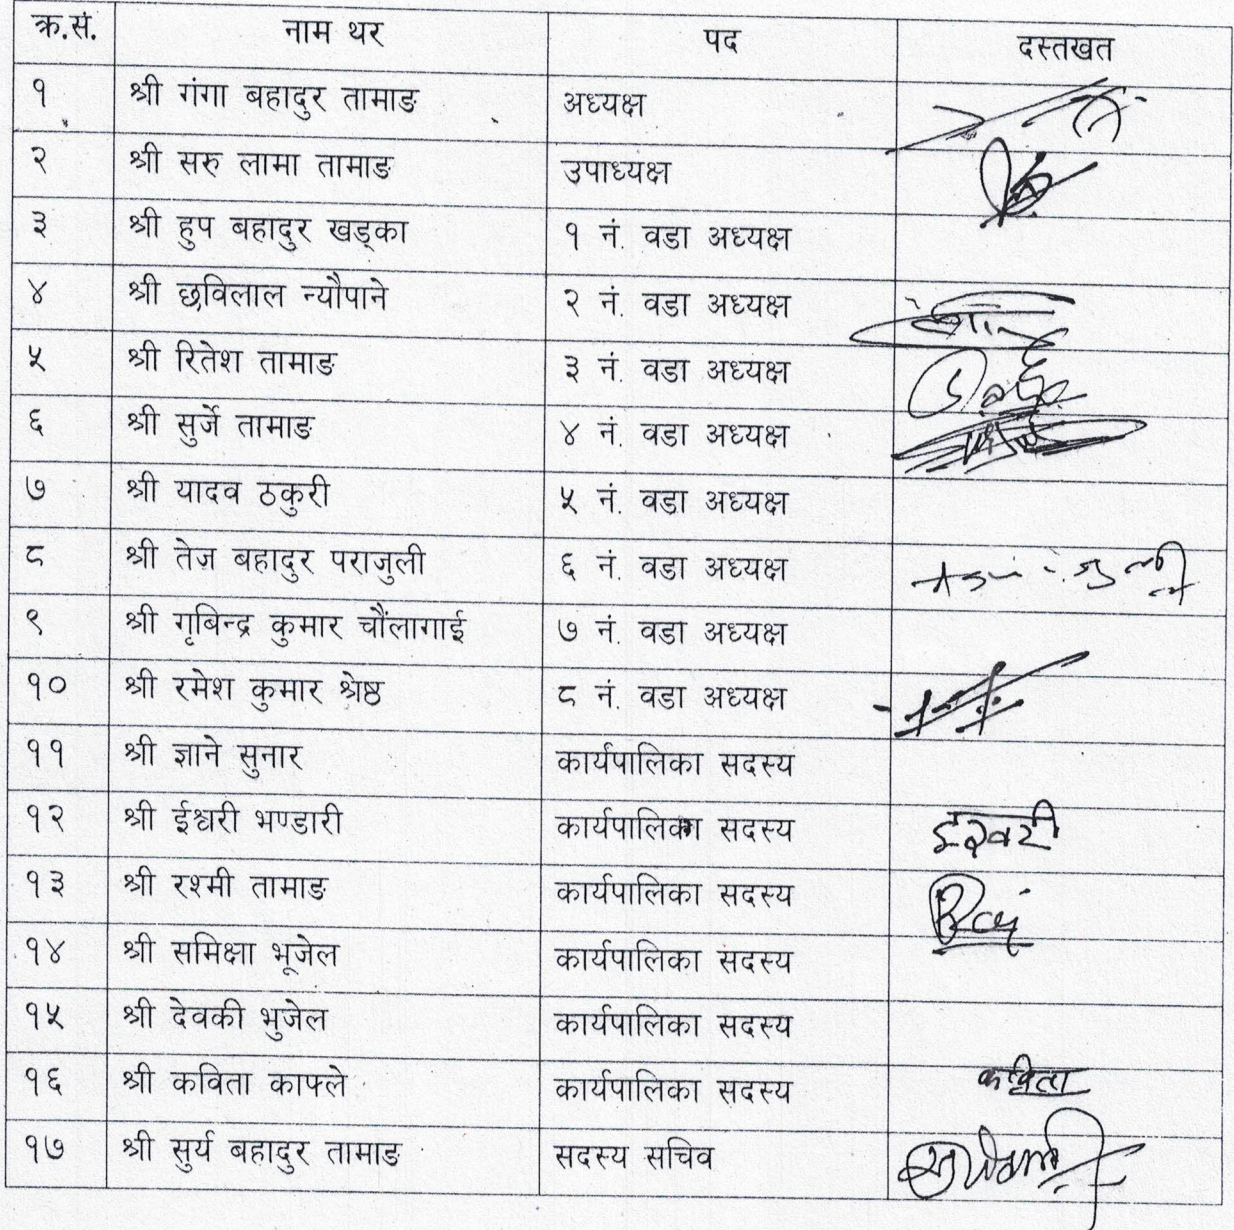 क्र.सं. नाम थर पद दस्तखत
१ श्री गंगा बहादुर तामाङ अध्यक्ष
२ श्री सरु लामा तामाङ उपाध्यक्ष
३ श्री हुप बहादुर खड्का १ नं. वडा अध्यक्ष
४ श्री छविलाल न्यौपाने २ नं. वडा अध्यक्ष
५ श्री रितेश तामाङ ३ नं. वडा अध्यक्ष
६ श्री सुर्जे तामाङ ४ नं. वडा अध्यक्ष
७ श्री यादव ठकुरी ५ नं. वडा अध्यक्ष
८ श्री तेज बहादुर पराजुली ६ नं. वडा अध्यक्ष
९ श्री गृबिन्द्र कुमार चौंलागाई ७ नं. वडा अध्यक्ष
१० श्री रमेश कुमार श्रेष्ठ ८ नं. वडा अध्यक्ष
११ श्री ज्ञाने सुनार कार्यपालिका सदस्य
१२ श्री ईश्वरी भण्डारी कार्यपालिका सदस्य ईश्वरी
१३ श्री रश्मी तामाङ कार्यपालिका सदस्य
१४ श्री समिक्षा भूजेल कार्यपालिका सदस्य
१५ श्री देवकी भुजेल कार्यपालिका सदस्य
१६ श्री कविता काफ्ले कार्यपालिका सदस्य कविता
१७ श्री सुर्य बहादुर तामाङ सदस्य सचिव